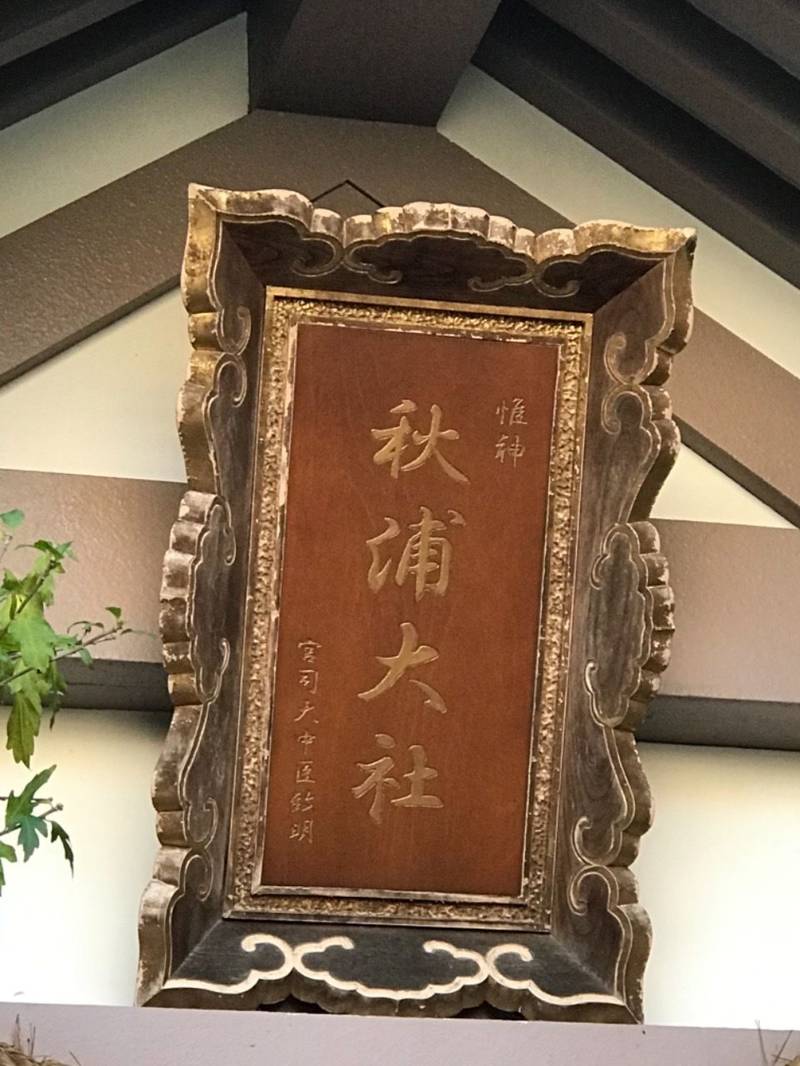 惟神
秋浦大社
宮司大中臣 明